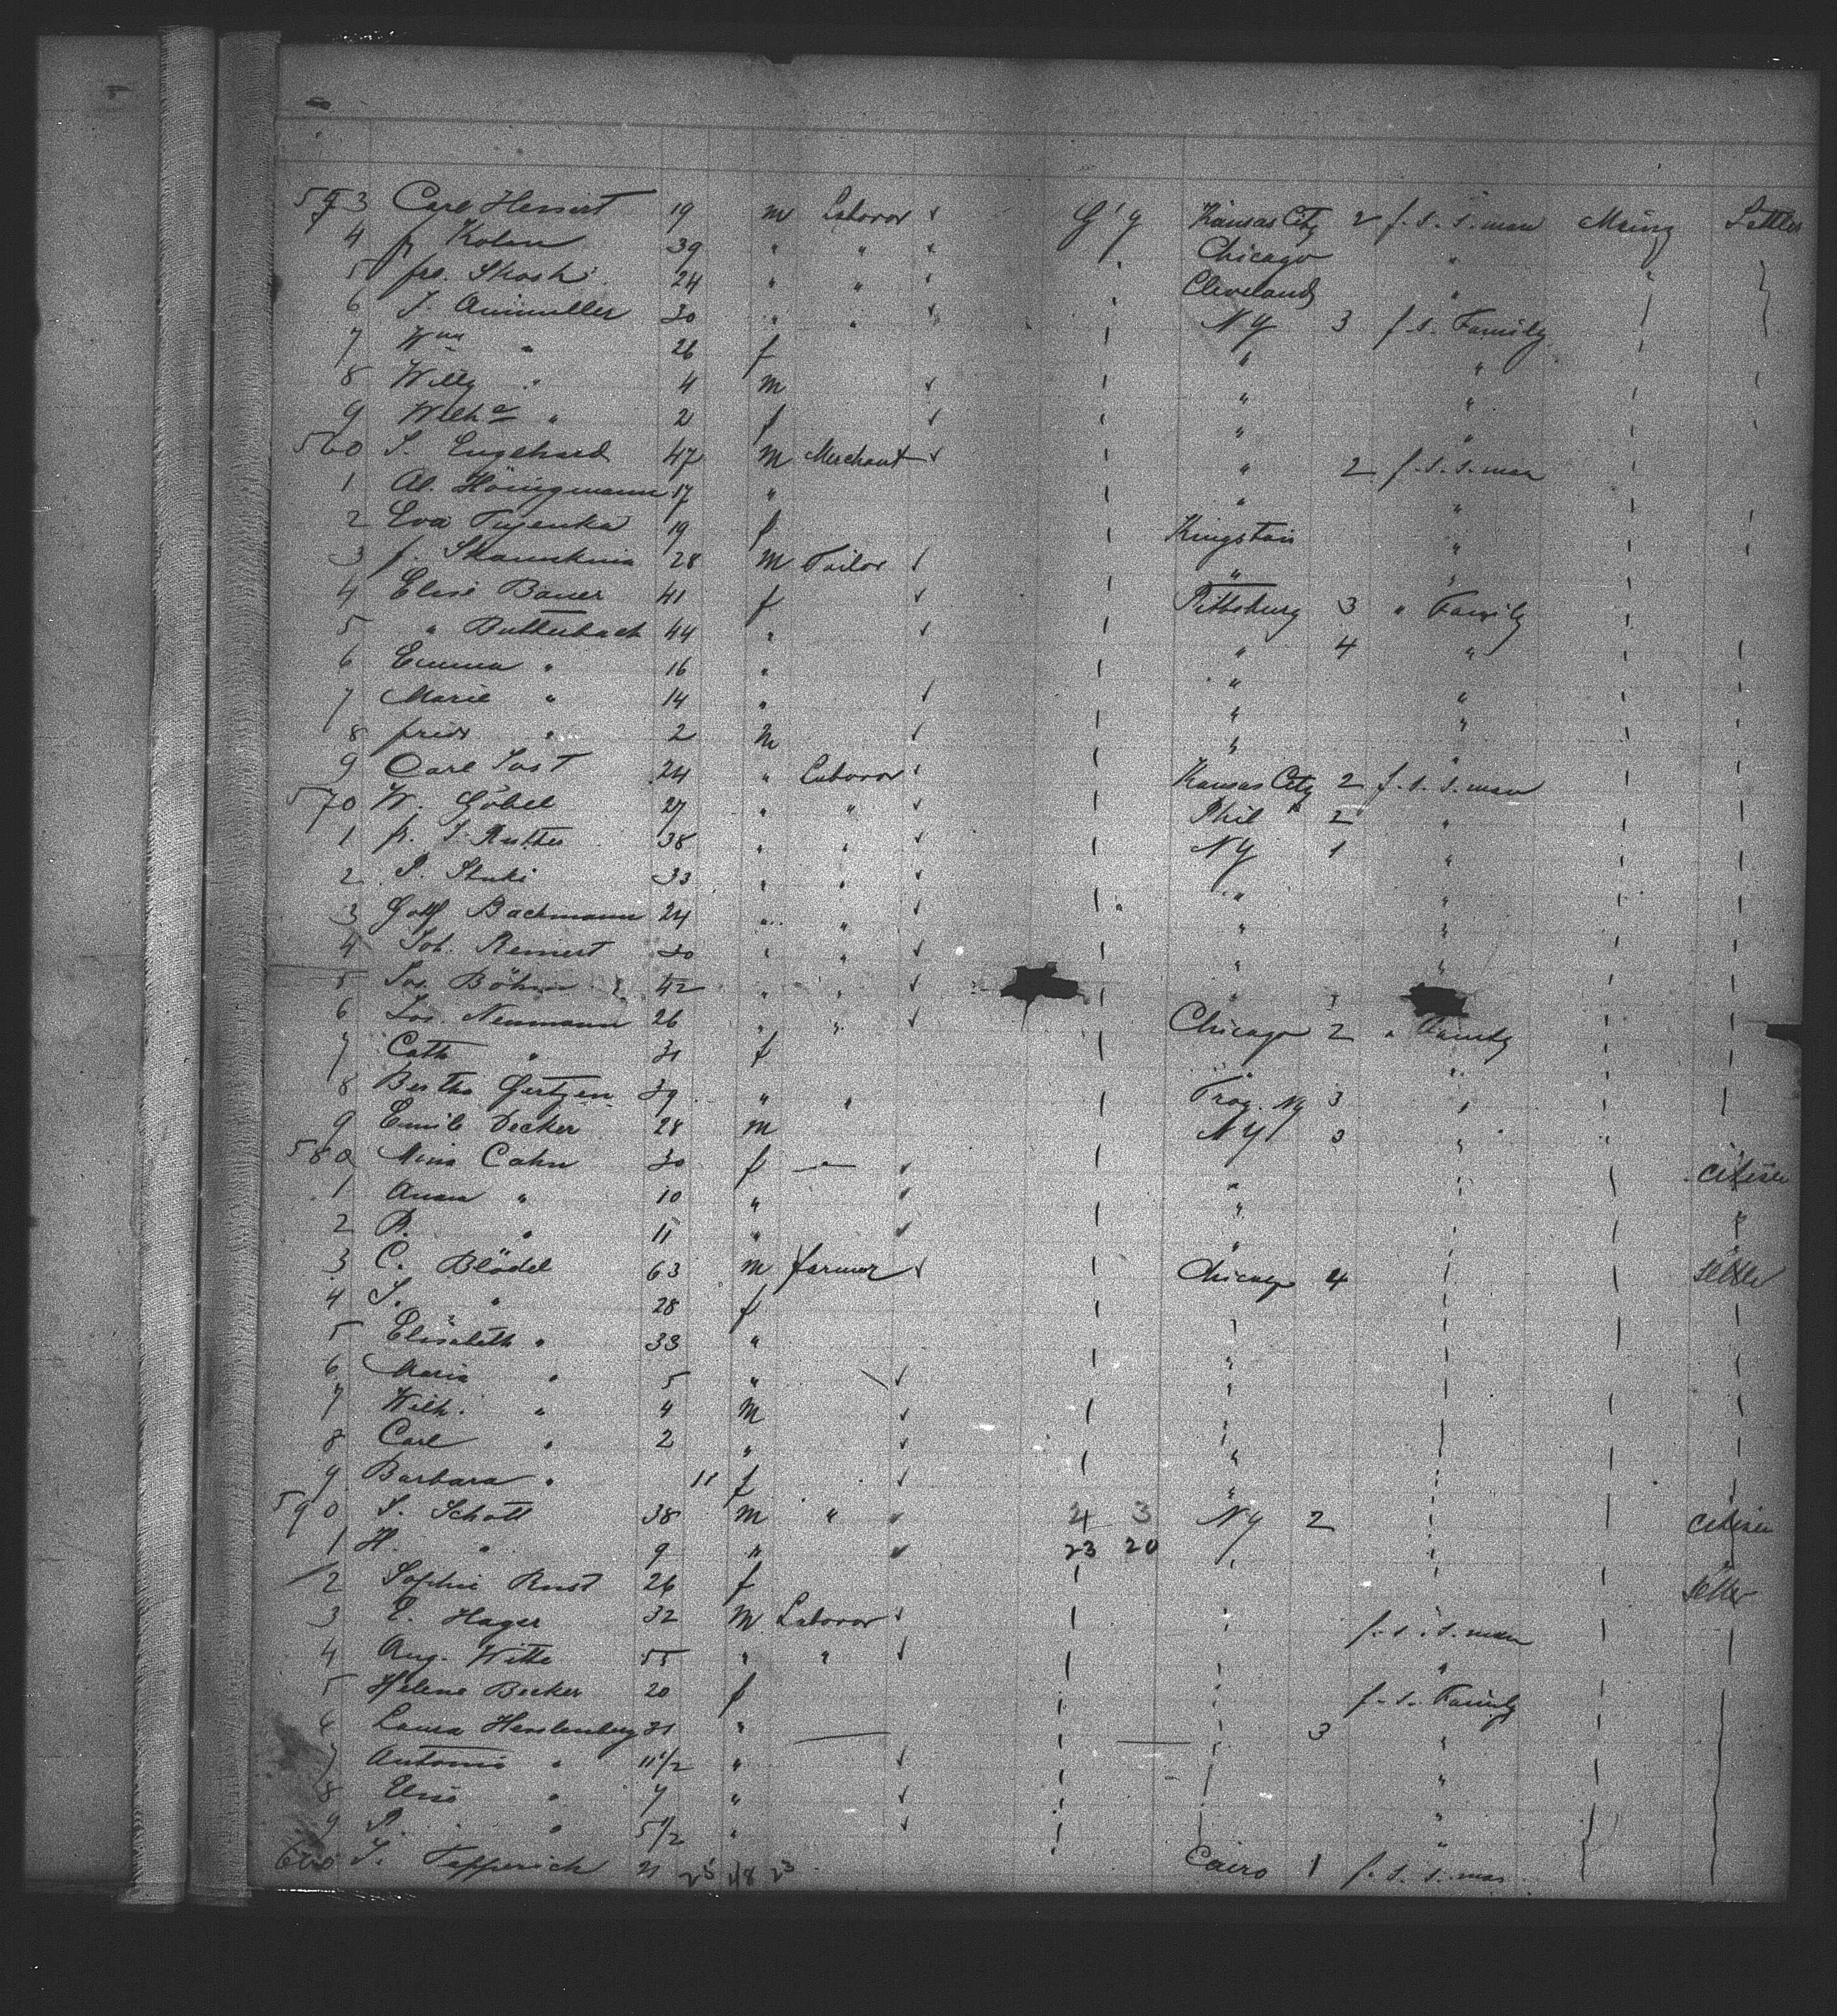 553 Carl Hessert 19 m Laborer √ G'y Kansas City 2 f. s. s. man Mainz Settler
4 fr Kolan 39 " " " Chicago "
5 fre. Skoski 24 " " Cleveland "
6 J. Aumuller 30 " " NY 3 f. s. Family
7 Wna " 26 f " "
8 Willy " 4 m √ " "
9 Wilha " 2 f √ " "
560 S. Engehard 47 m Merchant √ " 2 f. s. s. man
1 Al. Hönigmann 17 " " "
2 Eva 19 f Kingston "
3 f. 28 m Tailor √ " "
4 Elise Bauer 41 f √ Pittsburg 3 " Family
5 " Butterbach 44 " √ " 4 "
6 Emma " 16 " "
7 Marie " 14 " √ " "
8 fried " 2 m √ " "
9 Carl Jost 24 " Laborer √ Kansas City 2 f. s. s. man
570 W. Göbel 27 " " √ Phila 2 "
1 fr. J. Rutter 38 " " √ NY 1 "
2 P. Stuki 33 " " √ " "
3 Gottf Bachmann 24 " " √ " "
4 Joh. Remert 30 " " √ " "
5 Jos. Böhm 42 " " √ "
6 Jos. Neumann 26 " " √ Chicago 2 " Family
7 Cath " 31 f " "
8 Bertha Gertzen 39 " " Troy. NY 3 "
9 Emile Decker 28 m NY 3 "
580 Mina Cahn 30 f — " — √ " Citisen
1 Anna " 10 " √ "
2 B. " 11 " √ " "
3 C. Blödel 63 m farmer √ Chicago 4 Settler
4 S. " 28 f
5 Elisabeth " 33 " "
6 Maria " 5 " √ "
7 Wilh. " 4 m √
8 Carl " 2 " √ "
9 Barbara " 11 f √ "
590 S. Schott 38 m " √ 4 3 NY 2 Citisen
1 H. " 9 " √ 23 20
2 Sophie Rust 26 f Settler
3 E. Hager 32 m Laborer √ f. s. s. man
4 Aug. Witte 55 " " √ "
5 Helene Becker 20 f f. s. Family
6 Laura 31 " 3 "
7 Antonio " 11 1/2 " √ "
8 Elise " 7 " √ "
9 P. " 5 1/2 " √ "
600 J. Tapperich 21 25 48 23 Cairo 1 f. s. s. man